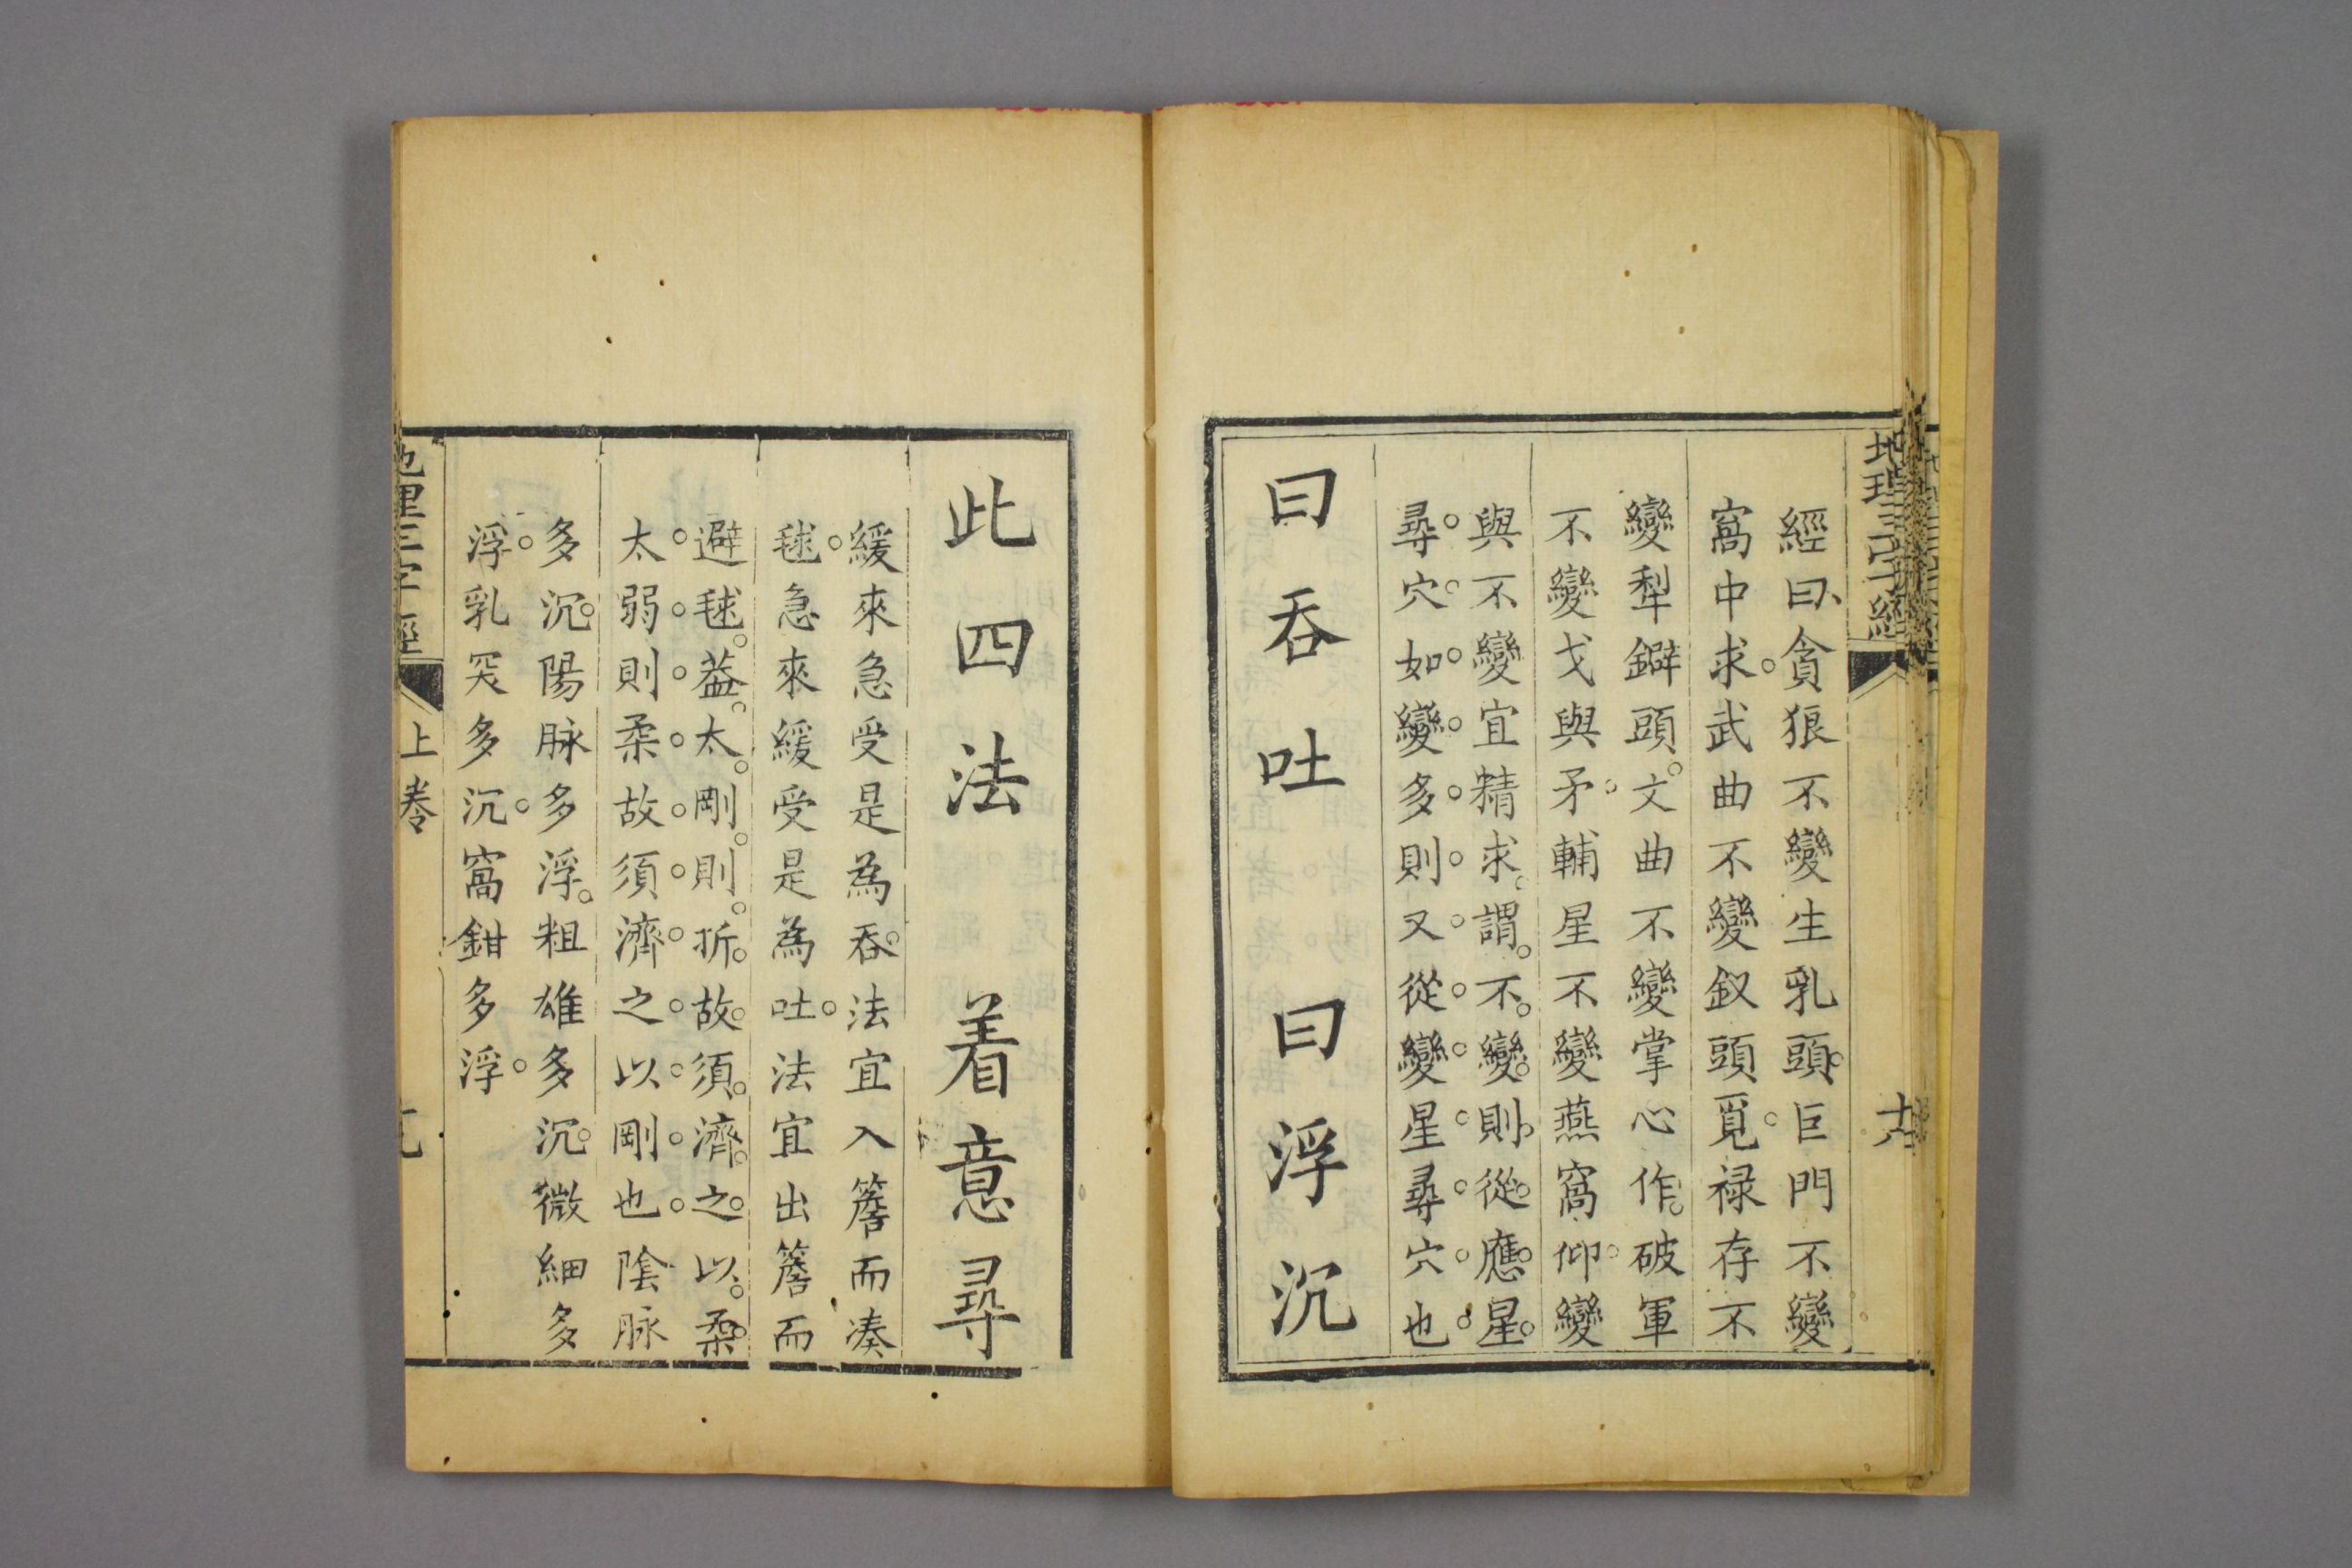 地理三字經
十六
經曰貪狼不變生乳頭巨門不變
窩中求武曲不變釵頭覓祿存不
變犁鐴頭文曲不變掌心作破軍
不變戈與矛輔星不變燕窩仰變
與不變宜精求謂不變則從應星
尋穴如變多則又從變星尋穴也
曰吞吐　曰浮沉
此四法　着意尋
緩來急受是為吞法宜入簷而湊
毬急來緩受是為吐法宜出簷而
避毬葢太剛則折故須濟之以柔
太弱則柔故須濟之以剛也陰脉
多沉陽脉多浮粗雄多沉微細多
浮乳突多沉窩鉗多浮
地理三字經
上卷